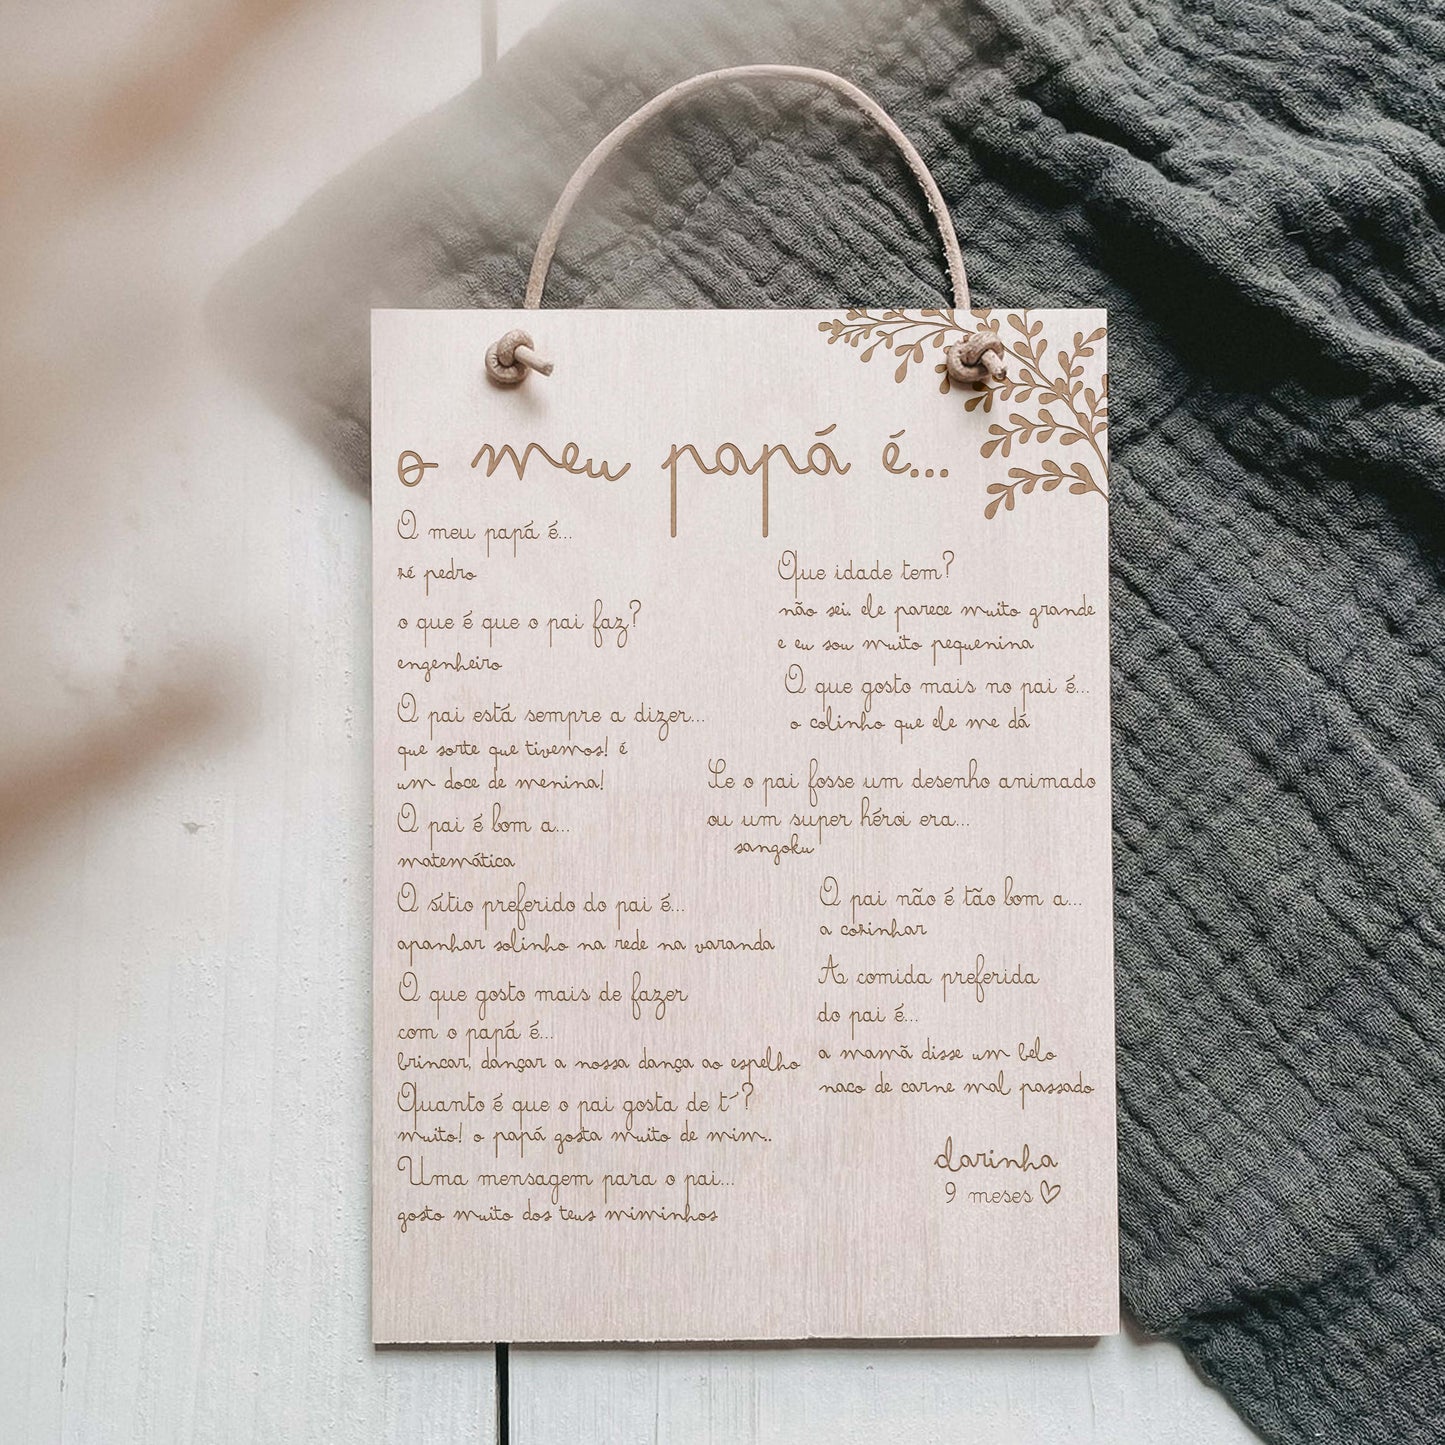 o meu papá é...
O meu papá é...
zé pedro
o que é que o pai faz?
engenheiro
O pai está sempre a dizer...
que sorte que tivemos! é
um doce de menina!
O pai é bom a...
matemática
O sítio preferido do pai é...
apanhar solinho na rede na varanda
O que gosto mais de fazer
com o papá é...
brincar, dançar a nossa dança ao espelho
Quanto é que o pai gosta de t´?
muito! o papá gosta muito de mim..
Uma mensagem para o pai...
gosto muito dos teus miminhos
Que idade tem?
não sei. ele parece muito grande
e eu sou muito pequenina
O que gosto mais no pai é...
o colinho que ele me dá
Se o pai fosse um desenho animado
ou um super héroi era...
sangoku
O pai não é tão bom a...
a cozinhar
A comida preferida
do pai é...
a mamã disse um belo
naco de carne mal passado
darinha
9 meses